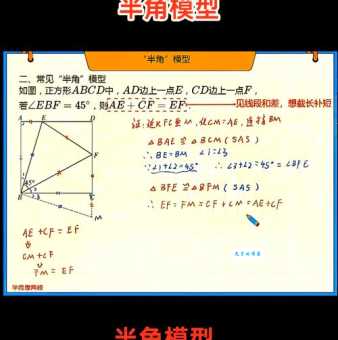 半角模型
"半角"模型
二、常见"半角"模型
如图，正方形ABCD中，AD边上一点E，CD边上一点F，
若∠EBF = 45°，则AE + CF = EF
见线段和差，想截长补短
A E D
F
B C
M
45°
证：延长FC至M，使CM=AE，连接BM
△BAE ≌ △BCM (SAS)
∴ BE=BM ∠1=∠3
∵∠1+∠2=45° ∴ ∠3+∠2=45°=∠BFE
△BFE ≌ △BFM (SAS)
∴ EF=FM=CF+CM=AE+CF
AE+CF = EF
CM+CF
FM = EF
半角模型